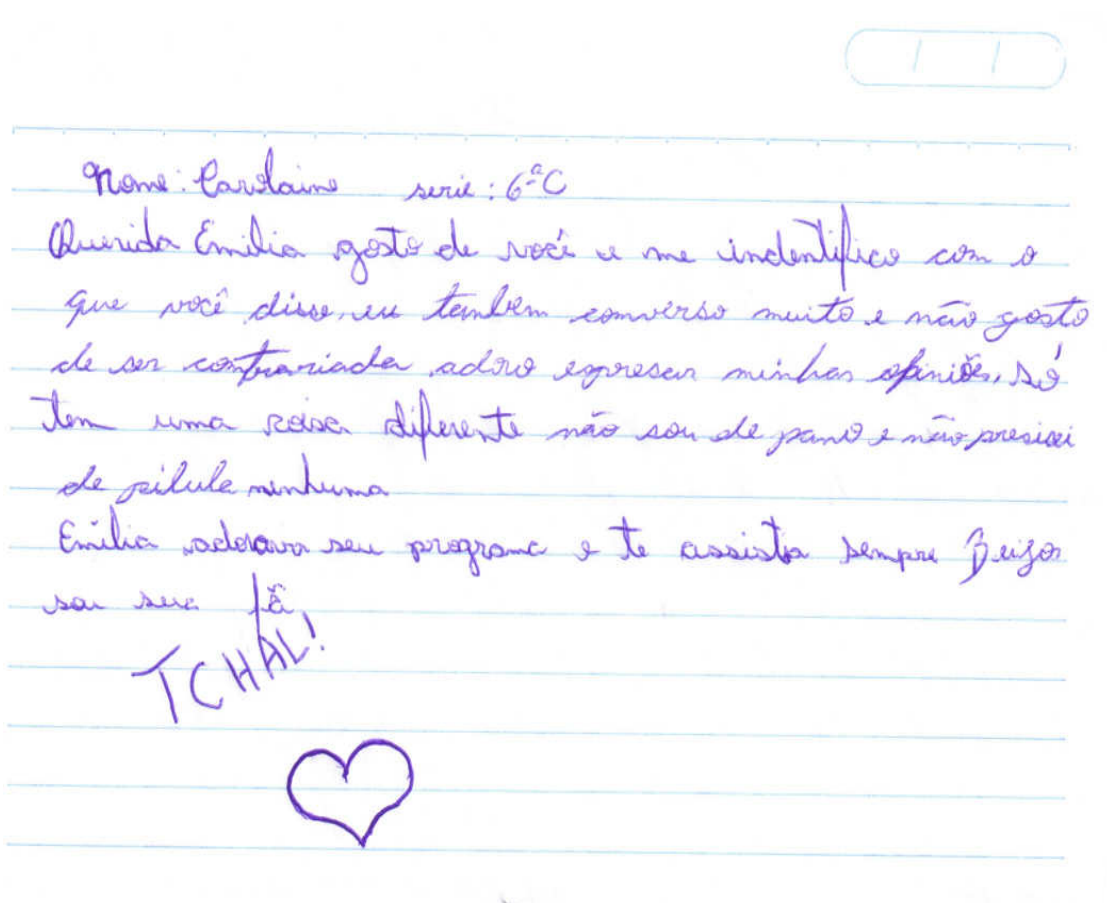 Nome: Carolaine serie: 6ªC
Querida Emilia gosto de você e me indentifico com o
que você disse, eu tambem converso muito e não gosto
de ser contrariada adoro expresar minhas opiniões, só
tem uma coisa diferente não sou de pano e não presisei
de pilula nenhuma
Emilia adorava seu programa e te assistia sempre Beijos
sou sua fã,
TCHAU!